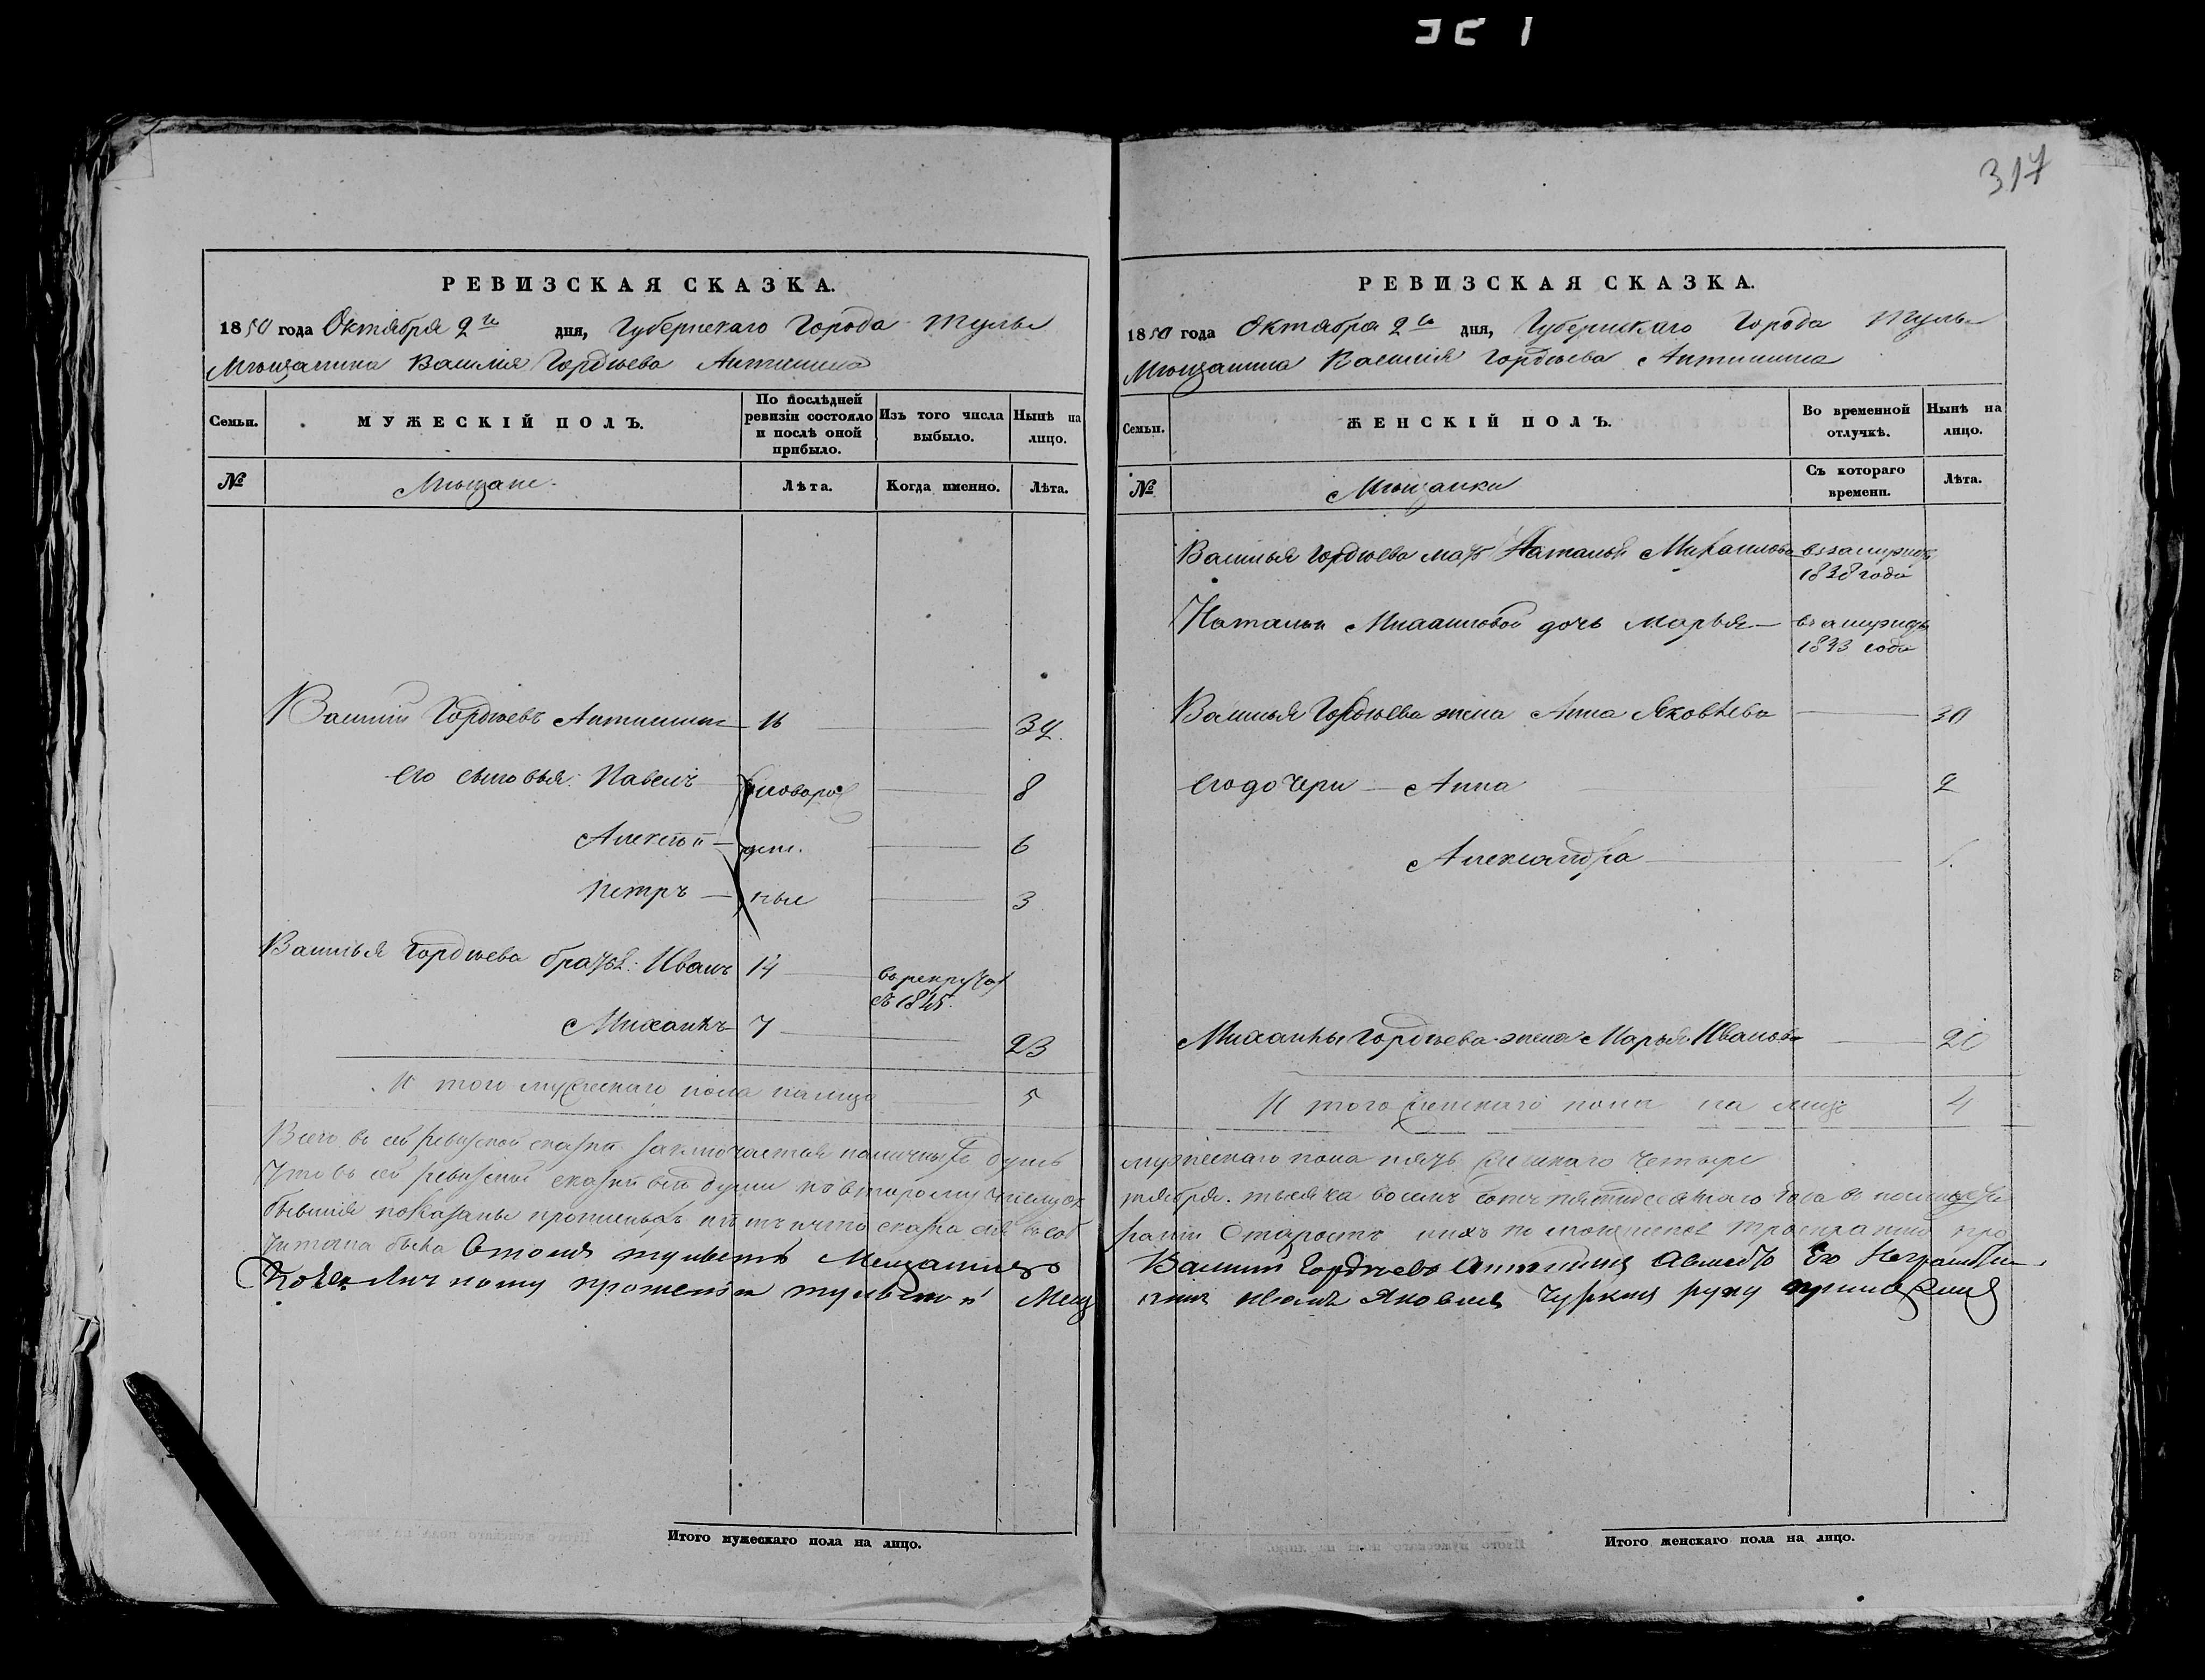 317
РЕВИЗСКАЯ СКАЗКА.
1850 года Октября 2го дня, Губернскаго Города Тулы
Мѣщанина Василія Гордѣева Антишина
Семьи.
МУЖЕСКІЙ ПОЛЪ.
По послѣдней ревизіи состояло и послѣ оной прибыло.
Изъ того числа выбыло.
Нынѣ на лицо.
№
Мѣщане.
Лѣта.
Когда именно.
Лѣта.
Василій Гордѣевъ Антишинъ 16 32.
его сыновья: Павелъ новорож 8
Алексѣй ден. 6
Петръ ные 3
Василья Гордѣева братья: Иванъ 14 въ рекрутах
съ 1845.
Михаилъ 7 23
И того мужескаго пола на лицо 5
Всего въ сей ревизской сказкѣ заключается наличныхъ душъ
Что въ сей ревизской сказкѣ всѣ души ко второму числу ок
бывшія показаны прописныхъ нѣтъ и что сказка сія въ
читана была В томъ тульскій Мещанинъ
по Ево личному прошенію тульской Мещ
РЕВИЗСКАЯ СКАЗКА.
1850 года Октября 2го дня, Губернскаго Города Тулы
Мѣщанина Василія Гордѣева Антишина
Семьи.
ЖЕНСКІЙ ПОЛЪ.
Во временной отлучкѣ.
Нынѣ на лицо.
№
Мѣщанки
Съ котораго времени.
Лѣта.
Василья Гордѣева мать Наталья Михаилова въ замужствѣ
1838 года
Натальи Михаиловой дочь Марья въ замужствѣ
1843 года
Василья Гордѣева жена Анна Яковлева 30
его дочери Анна 2
Александра 1.
Михаилы Гордѣева жена Марья Иванова 20
И того женскаго пола на лицо 4
мужескаго пола пять женскаго четыре
тября тысяча восемь сотъ пятидесятаго года въ
Василий Гордѣевъ Антишинъ Авместо Ево Неграмотна
нинъ Иванъ Яковлев Чуркинъ руку приложилъ
Итого мужескаго пола на лицо.
Итого женскаго пола на лицо.